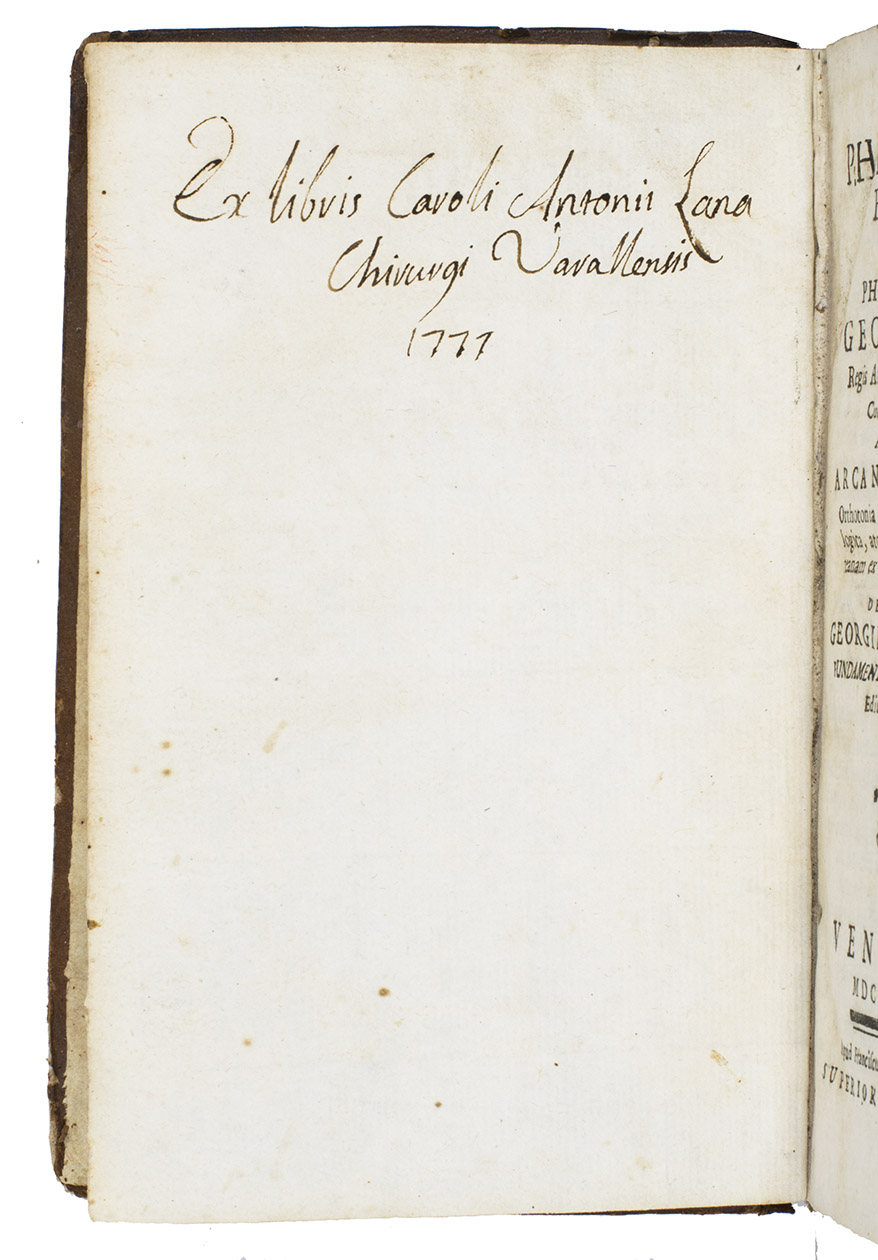 Ex libris Caroli Antonii Lana
Chirurgi Varallensis
1777
PH
GEO
Regis A
ARCAN
Orthotonia
logica,
DE
GEORGI
FUNDAMEN
Edi
VEN
MDC
Apud Francisc
SUPERIOR